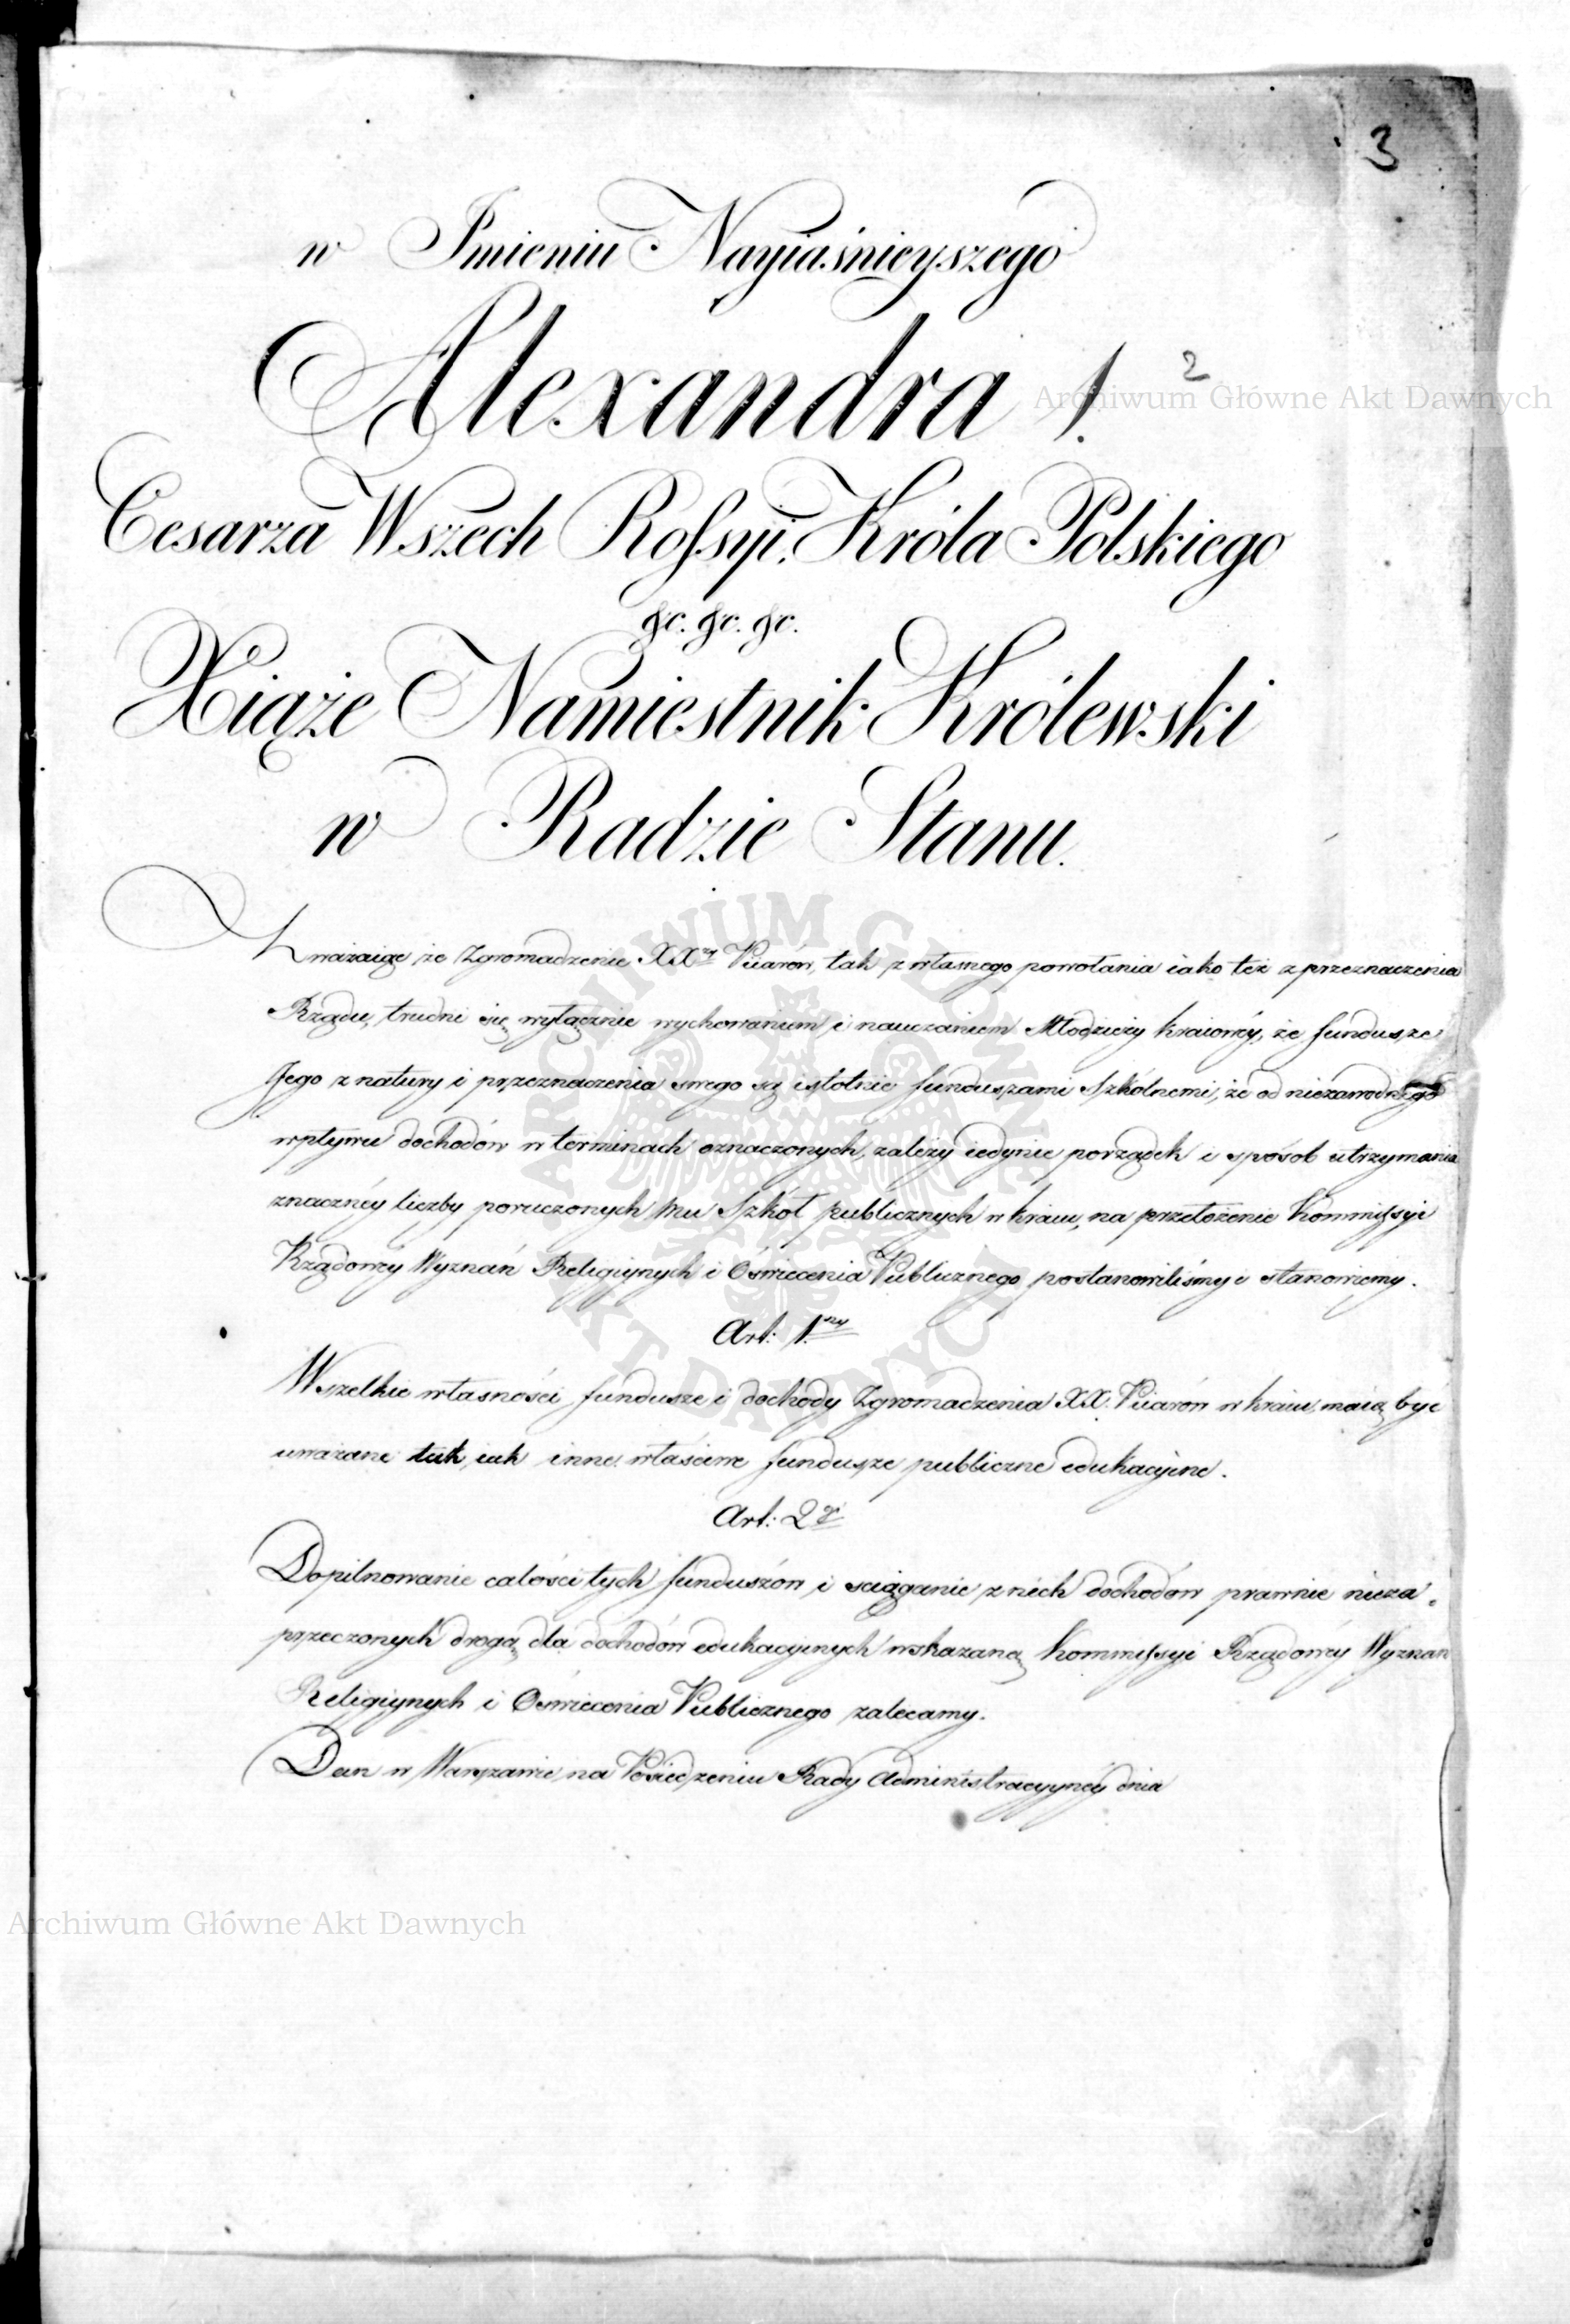 3
w Imieniu Nayiaśnieyszego
Alexandra I.
2
Cesarza Wszech Rossyi, Króla Polskiego
&c. &c. &c.
Xiąże Namiestnik Królewski
w Radzie Stanu.
Uważaiąc że Zgromadzenie XXży Piiarów, tak z własnego powołania iako też z przeznaczenia
Rządu, trudni się wyłącznie wychowaniem i nauczaniem Młodzieży kraiowéy, że fundusze
Jego z natury i przeznaczenia swego są istotnie funduszami Szkólnemi, że od niezawodnego
wpływu dochodów w terminach oznaczonych, zależy iedynie porządek i sposób utrzymania
znacznéy liczby poruczonych mu Szkół publicznych w kraiu, na przełożenie Kommissyi
Rządowéy Wyznań Religiynych i Oświecenia Publicznego postanowiliśmy i stanowiemy.
Art: 1szy
Wszelkie własności fundusze i dochody Zgromadzenia XX. Piiarów w kraiu, maią być
uważane tak iak inne właściwe fundusze publiczne edukacyine.
Art: 2gi
Dopilnowanie całości tych funduszów i sciąganie z nich dochodów prawnie nieza-
przeczonych drogą dla dochodów edukacyinych wskazaną Kommissyi Rządowéy Wyznań
Religiynych i Oświecenia Publicznego zalecamy.
Dan w Warszawie na Posiedzeniu Rady Administracyynéy dnia
Archiwum Główne Akt Dawnych
Archiwum Główne Akt Dawnych
ARCHIWUM GŁÓWNE AKT DAWNYCH